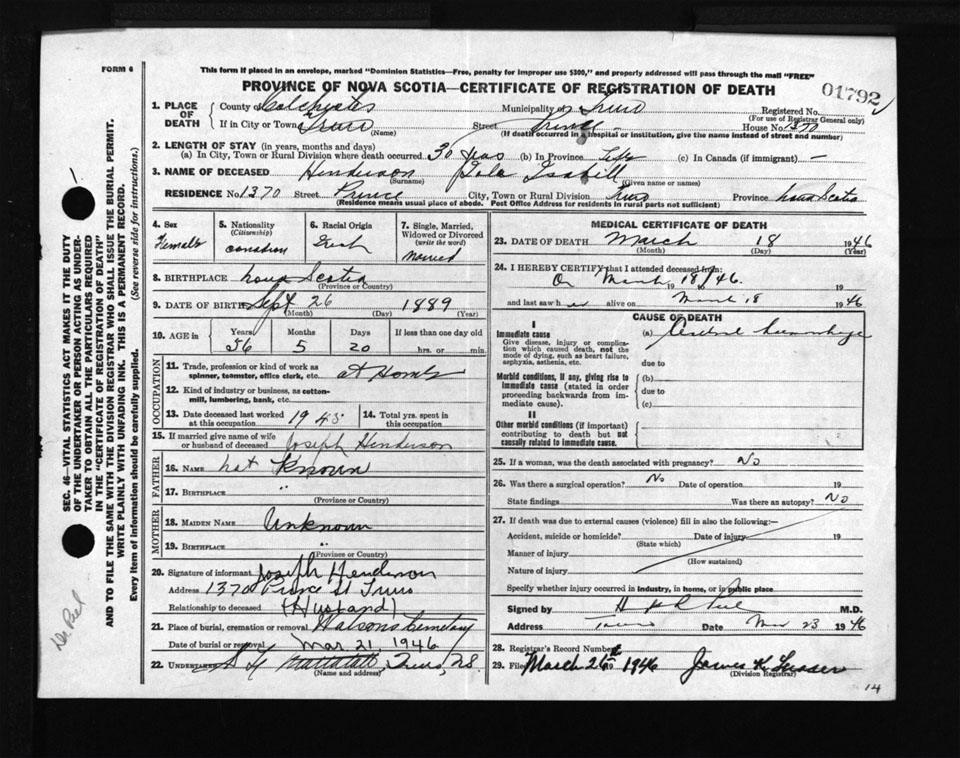 FORM 6
This form if placed in an envelope, marked "Dominion Statistics—Free, penalty for improper use $300," and properly addressed will pass through the mail "FREE"
PROVINCE OF NOVA SCOTIA—CERTIFICATE OF REGISTRATION OF DEATH
01792
1. PLACE OF DEATH
County of Colchester Municipality of Truro Registered No.
(For use of Registrar General only)
If in City or Town Truro Street Prince House No. 1370
(Name) (If death occurred in a hospital or institution, give the name instead of street and number)
2. LENGTH OF STAY (in years, months and days)
(a) In City, Town or Rural Division where death occurred 30 years (b) In Province Life (c) In Canada (if immigrant) —
3. NAME OF DECEASED Henderson Isabell
(Surname) (Given name or names)
RESIDENCE No. 1370 Street Prince City, Town or Rural Division Truro Province Nova Scotia
(Residence means usual place of abode. Post Office Address for residents in rural parts not sufficient)
4. Sex
Female
5. Nationality
(Citizenship)
Canadian
6. Racial Origin
7. Single, Married, Widowed or Divorced
(write the word)
Married
8. BIRTHPLACE Nova Scotia
(Province or Country)
9. DATE OF BIRTH Sept 26 1889
(Month) (Day) (Year)
10. AGE in
Years Months Days If less than one day old
56 5 20 hrs. or min.
OCCUPATION
11. Trade, profession or kind of work as
spinner, teamster, office clerk, etc. at Home
12. Kind of industry or business, as cotton-
mill, lumbering, bank, etc.
13. Date deceased last worked
at this occupation 1945
14. Total yrs. spent in
this occupation
15. If married give name of wife
or husband of deceased Joseph Henderson
FATHER
16. NAME not known
17. BIRTHPLACE "
(Province or Country)
MOTHER
18. MAIDEN NAME Unknown
19. BIRTHPLACE "
(Province or Country)
20. Signature of informant Joseph Henderson
Address 1370 Prince St Truro
Relationship to deceased (Husband)
21. Place of burial, cremation or removal Watsons Cemetary
Date of burial or removal Mar 21, 1946
22. UNDERTAKER Truro, N.S.
(Name and address)
MEDICAL CERTIFICATE OF DEATH
23. DATE OF DEATH March 18 1946
(Month) (Day) (Year)
24. I HEREBY CERTIFY that I attended deceased from:
On March 18/46. 19 19
and last saw her alive on March 18 1946
CAUSE OF DEATH
I
Immediate cause
Give disease, injury or complica-
tion which caused death, not the
mode of dying, such as heart failure,
asphyxia, asthenia, etc.
(a) Cerebral hemorrhage
due to
Morbid conditions, if any, giving rise to
immediate cause (stated in order
proceeding backwards from im-
mediate cause).
(b)
due to
(c)
II
Other morbid conditions (if important)
contributing to death but not
causally related to immediate cause.
25. If a woman, was the death associated with pregnancy? No
26. Was there a surgical operation? No Date of operation 19
State findings Was there an autopsy? No
27. If death was due to external causes (violence) fill in also the following:—
Accident, suicide or homicide? Date of injury 19
(State which)
Manner of injury
(How sustained)
Nature of injury
Specify whether injury occurred in industry, in home, or in public place
Signed by Peel M.D.
Address Truro Date Mar 23 1946
28. Registrar's Record Number
29. Filed March 26th 1946 James K.
(Division Registrar)
14
SEC. 46—VITAL STATISTICS ACT MAKES IT THE DUTY
OF THE UNDERTAKER OR PERSON ACTING AS UNDER-
TAKER TO OBTAIN ALL THE PARTICULARS REQUIRED
IN THE "CERTIFICATE OF REGISTRATION OF DEATH"
AND TO FILE THE SAME WITH THE DIVISION REGISTRAR WHO SHALL ISSUE THE BURIAL PERMIT.
WRITE PLAINLY WITH UNFADING INK. THIS IS A PERMANENT RECORD.
Every item of information should be carefully supplied. (See reverse side for instructions.)
Dr. Peel